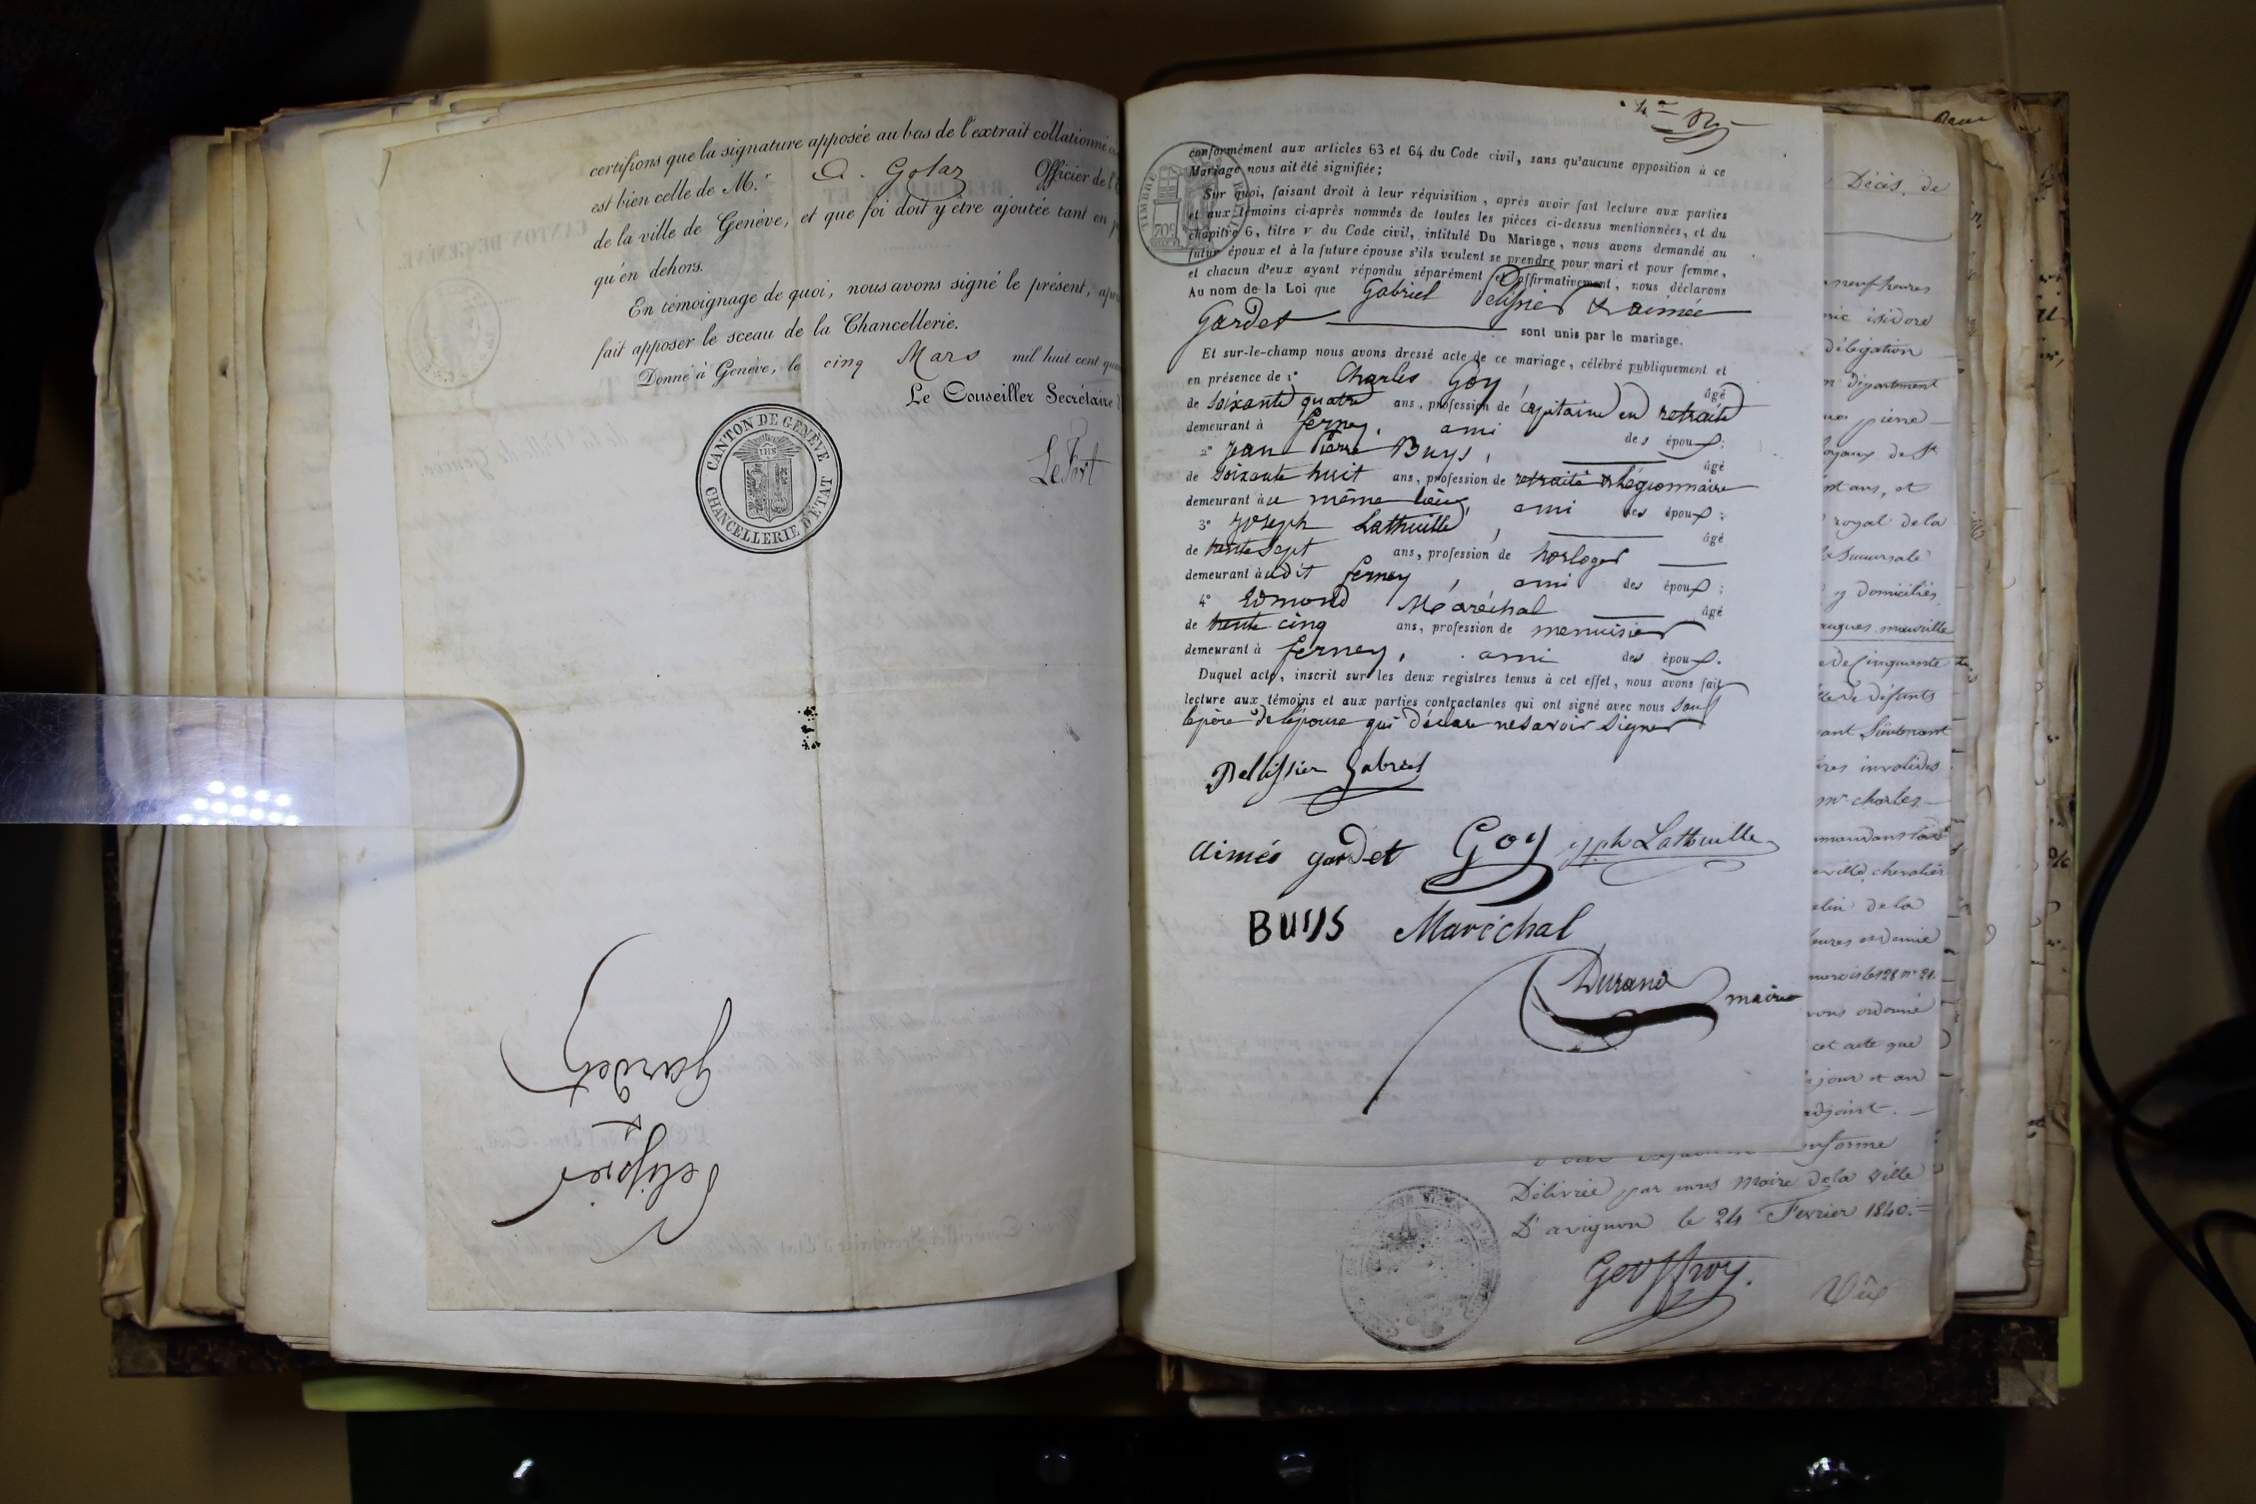 certifions que la signature apposée au bas de l'extrait collationné
est bien celle de M.r A. Golaz Officier de l'
de la ville de Genève, et que foi doit y être ajoutée tant en
qu'en dehors.
En témoignage de quoi, nous avons signé le présent,
fait apposer le sceau de la Chancellerie.
Donné à Genève, le cinq Mars mil huit cent
Le Conseiller Secrétaire
LeFort
CANTON DE GENÈVE
IHS
CHANCELLERIE D'ÉTAT
Gardet
&
Pelissier
conformément aux articles 63 et 64 du Code civil, sans qu'aucune opposition à ce
Mariage nous ait été signifiée;
Sur quoi, faisant droit à leur réquisition, après avoir fait lecture aux parties
et aux témoins ci-après nommés de toutes les pièces ci-dessus mentionnées, et du
chapitre 6, titre v du Code civil, intitulé Du Mariage, nous avons demandé au
futur époux et à la future épouse s'ils veulent se prendre pour mari et pour femme,
et chacun d'eux ayant répondu séparément et affirmativement, nous déclarons
Au nom de la Loi que Gabriel Pelissier & aimée
Gardet sont unis par le mariage.
Et sur-le-champ nous avons dressé acte de ce mariage, célébré publiquement et
en présence de 1° Charles Goy, âgé
de soixante quatre ans, profession de capitaine en retraite
demeurant à ferney, ami des époux;
2° Jean Pierre Buys, âgé
de soixante huit ans, profession de retraité & légionnaire
demeurant au même lieu, ami des époux;
3° Joseph Lathuille, âgé
de trente sept ans, profession de horloger
demeurant audit ferney, ami des époux;
4° Edmond Maréchal âgé
de trente cinq ans, profession de menuisier
demeurant à ferney, ami des époux.
Duquel acte, inscrit sur les deux registres tenus à cet effet, nous avons fait
lecture aux témoins et aux parties contractantes qui ont signé avec nous sauf
le père de l'épouse qui déclare ne savoir signer
Pellissier Gabriel
aimée gardet Goy jph Lathuille
BUYS Maréchal
Durand maire
Décès, de
neuf heures
isidore
délégation
département
pierre
loyaux de St
ans, et
royal de la
succursale
y domiciliés
de cinquante
défunts
Lieutenant
invalides
mr charles
chevalier
de la
ordonné
cet acte que
jour et an
adjoint.
conforme
Délivrée par nous Maire de la ville
D'avignon le 24 Fevrier 1840.
Geoffroy.
Vû